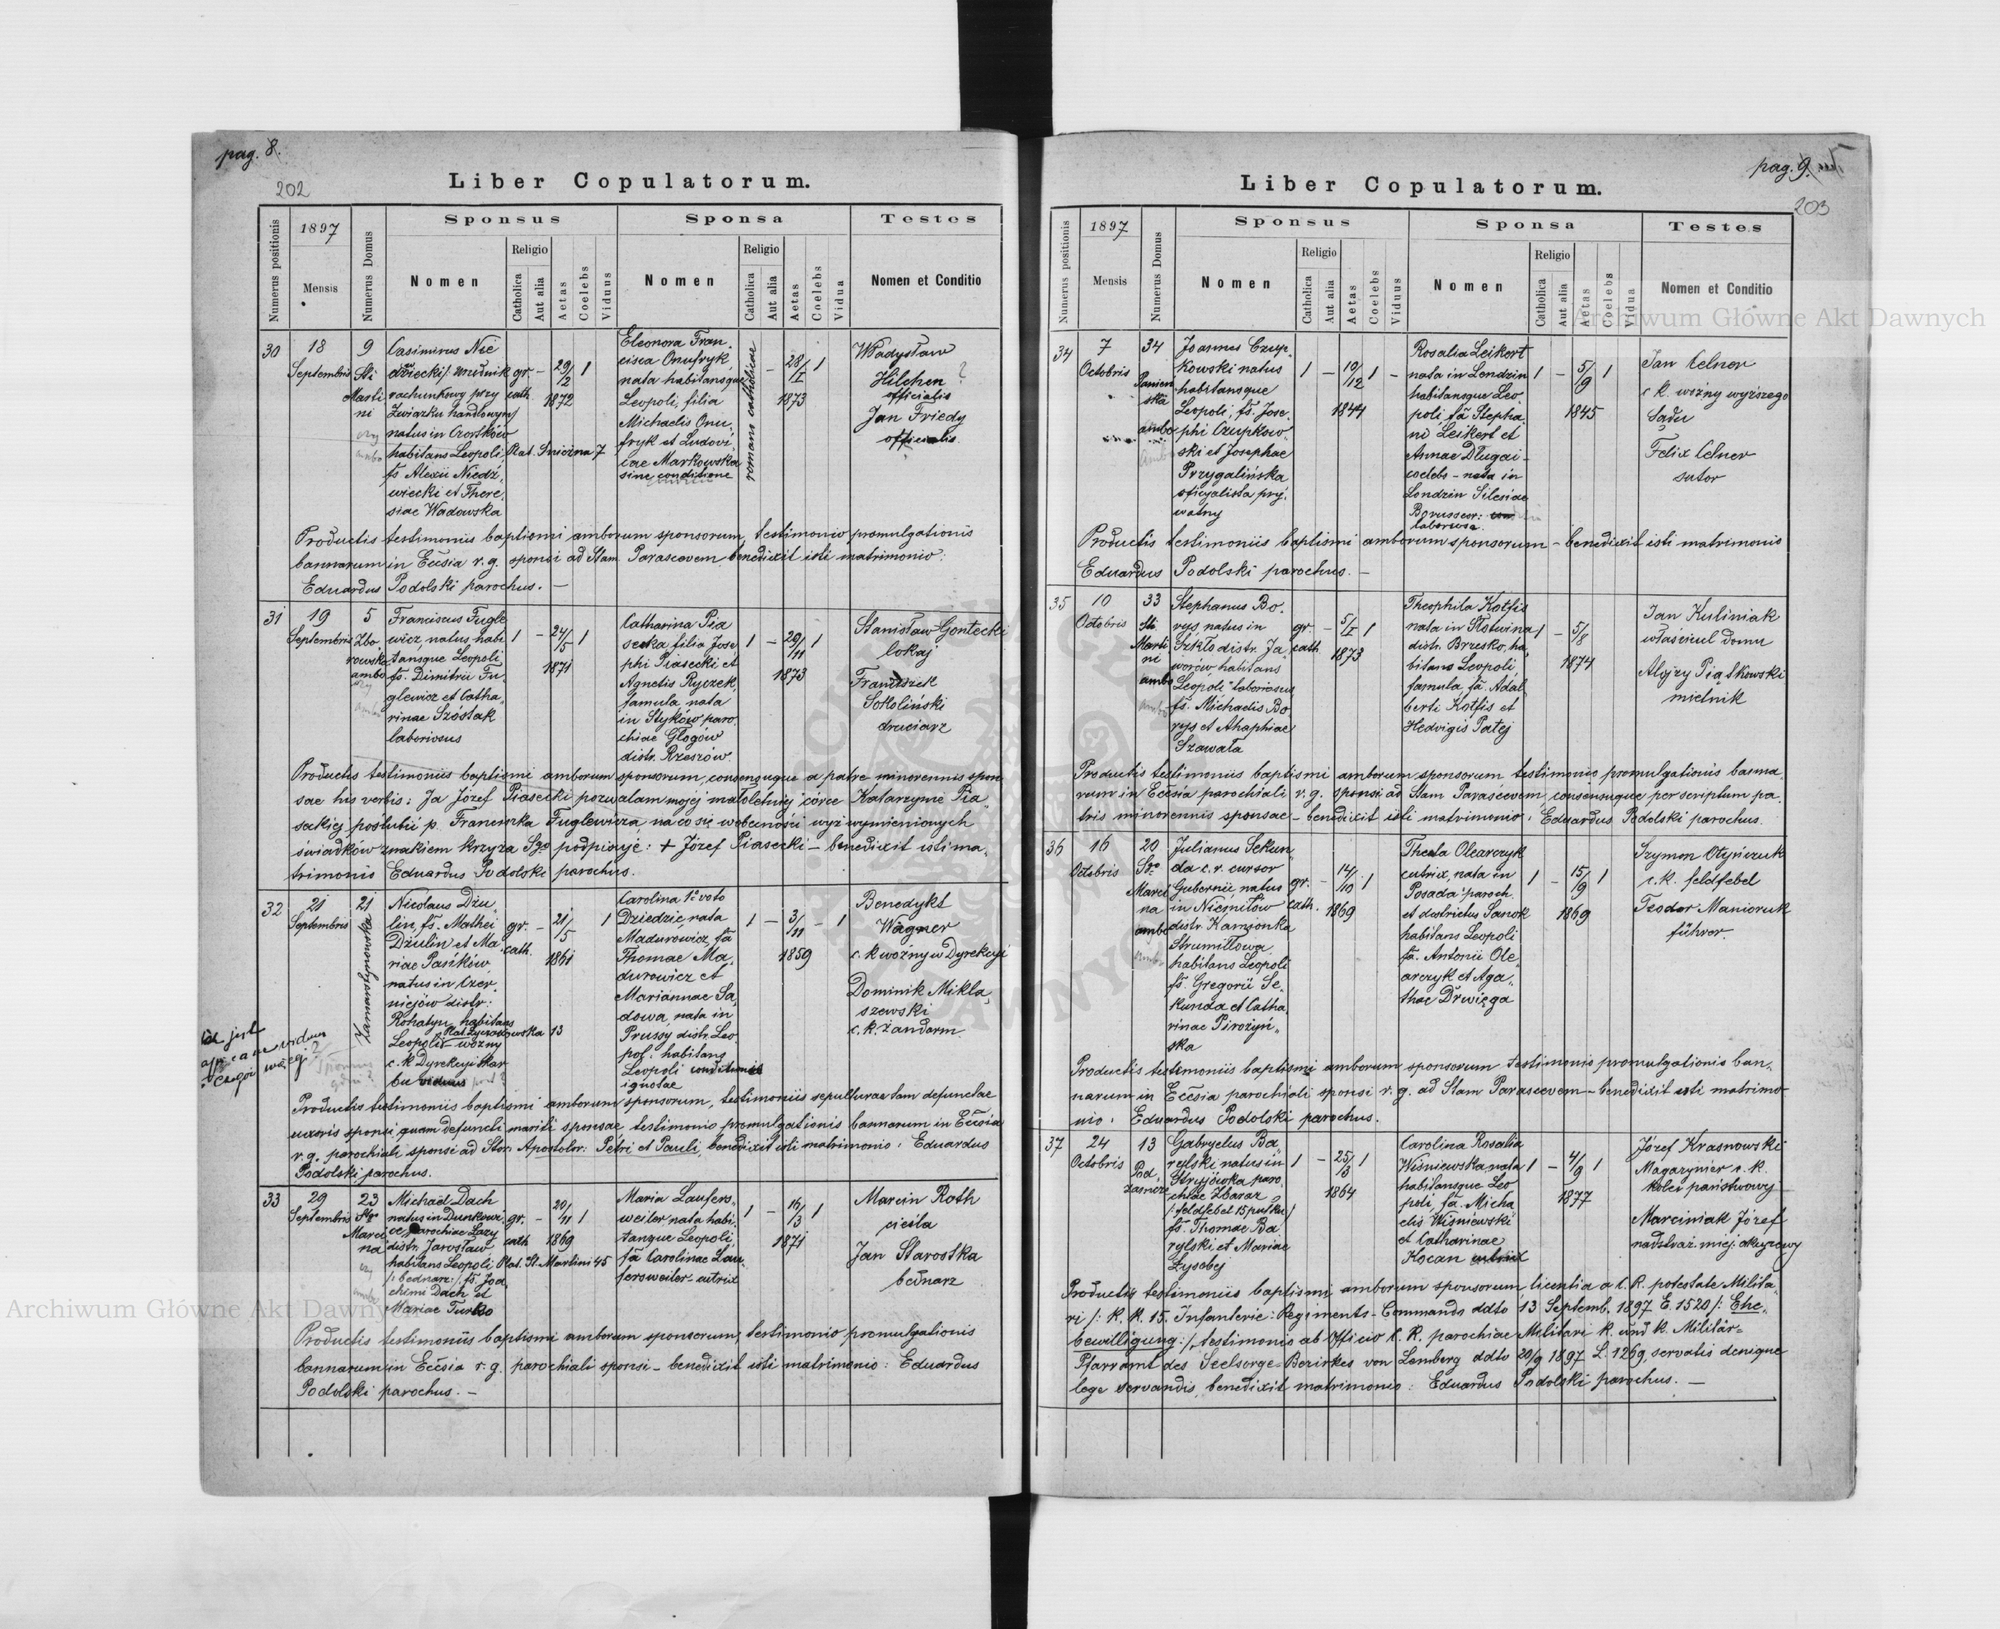 pag. 8.
202
Liber Copulatorum.
Numerus positionis
1897
Mensis
Numerus Domus
Sponsus
Nomen
Religio
Catholica
Aut alia
Aetas
Coelebs
Viduus
Sponsa
Nomen
Religio
Catholica
Aut alia
Aetas
Coelebs
Vidua
Testes
Nomen et Conditio
30
18
Septembris
9
Sti
Marti
ni
Casimirus Nie
dźwiecki/ urzędnik
rachunkowy przy
Związku handlowym/
natus in Czortków
habitans Leopoli, Plat. Śnieżna 7
fs. Alexii Niedź,
wiecki et There,
siae Wadowska
gr.
cath.
–
29/2
1872
1
Eleonora Fran,
cisca Onufryk,
nata habitansque
Leopoli, filia
Michaelis Onu,
fryk et Ludovi
cae Markowska
sine conditione
romano catholicae
–
28/I
1873
1
Władysław
Hilchen ?
officialis
Jan Friedy
officialis
Productis testimoniis baptismi amborum sponsorum, testimonio promulgationis
bannarum in Ecclsia r. g. sponsi ad Stam Parascevem benedixit isti matrimonio:
Eduardus Podolski parochus. —
31
19
Septembris
5
Zbo,
rowska
ambo
Franciscus Fugle
wicz, natus, habi
tansque Leopoli,
fs. Dimitrii Fu,
glewicz et Catha,
rinae Szóstak
laboriosus
1
–
24/5
1871
1
Catharina Pia
secka, filia Jose
phi Piasecki et
Agnetis Ryczek,
famula nata
in Styków paro,
chiae Głogów
distr. Rzeszów.
1
–
29/11
1873
1
Stanisław Gontecki
lokaj
Franciszek
Sokoliński
druciarz
Productis testimoniis baptismi amborum sponsorum, consensuque a patre minorennis spon
sae his verbis: Ja Józef Piasecki pozwalam mojej małoletniej córce Katarzynie Pia,
seckiej poślubić p. Franciszka Fuglewicza, na co się w obecności wyż wymienionych
świadków znakiem krzyża Sgo podpisuję: + Józef Piasecki – benedixit isti ma,
trimonio Eduardus Podolski parochus.
32
21
Septembris
21
Zamarstynowska
Nicolaus Dziu
lin, fs. Mathei
Dziulin et Ma,
riae Pasików
natus in Czer,
niejów distr:
Rohatyn, habitans
Leopoli – woźny
c. k. Dyrekcyi skar
bu viduus
gr.
cath.
–
21/5
1861
1
Carolina 1o voto
Dziedzic, nata
Madurowicz, fa
Thomae Ma,
durowicz et
Mariannae Sa,
dowa, nata in
Prusy distr. Leo,
pol. habitans
Leopoli conditionis
ignotae
1
–
3/11
1859
–
1
Benedykt
Wagner
c. k. woźny w Dyrekcyi
Dominik Mikla,
szewski
c. k. żandarm
Productis testimoniis baptismi amborum sponsorum, testimoniis sepulturae tam defunctae
uxoris sponsi quam defuncti mariti sponsae testimonio promulgationis bannarum in Ecclsia
r. g. parochiali sponsi ad Stor: Apostolor: Petri et Pauli, benedixit isti matrimonio: Eduardus
Podolski parochus.
33
29
Septembris
23
Stae
Marci
na
Michaël Dach
natus in Dunkowi
ce parochiae Łazy
distr. Jarosław
habitans Leopoli Plat. St. Martini 45
/: bednarz:/ fs. Joa,
chimi Dach et
Mariae Turko
gr.
cath
–
20/11
1869
1
Maria Laufers,
weiler, nata habi,
tansque Leopoli,
fa Carolinae Lau,
fersweiler, cutrix
1
–
16/3
1871
1
Marcin Roth
cieśla
Jan Starostka
bednarz
Productis testimoniis baptismi amborum sponsorum, testimonio promulgationis
bannarum in Ecclsia r. g. parochiali sponsi – benedixit isti matrimonio: Eduardus
Podolski parochus. —
pag. 9.
203
Liber Copulatorum.
Numerus positionis
1897
Mensis
Numerus Domus
Sponsus
Nomen
Religio
Catholica
Aut alia
Aetas
Coelebs
Viduus
Sponsa
Nomen
Religio
Catholica
Aut alia
Aetas
Coelebs
Vidua
Testes
Nomen et Conditio
34
7
Octobris
34
Panien
ska
ambo
Joannes Czup,
kowski natus
habitansque
Leopoli, fs. Jose,
phi Czupkow,
ski et Josephae
Przygalińska
oficyalista pry,
watny
1
–
19/12
1844
1
–
Rosalia Leikert
nata in Lendzin
habitansque Leo,
poli, fa Stepha,
ni Leikert et
Annae Długai –
coelebs – nata in
Londzin Silesiae
Borussor:
laboriosa
1
–
5/9
1845
1
Jan Celner
c k. woźny wyższego
Sądu
Felix Celner
sutor
Productis testimoniis baptismi amborum sponsorum – benedixit isti matrimonio
Eduardus Podolski parochus. —
35
10
Octobris
33
Sti
Marti
ni
ambo
Stephanus Bo,
rys natus in
Szkło distr. Ja
worów, habitans
Leopoli laboriosus
fs. Michaelis Bo
rys et Ahaphiae
Szawała
gr.
cath
–
5/I
1873
1
Theophila Kotfis
nata in Słotwina
distr. Brzesko, ha,
bitans Leopoli
famula, fa. Adal
berti Kotfis et
Hedvigis Patej
1
–
5/8
1874
1
Jan Kuliniak
właściciel domu
Alojzy Piątkowski
mielnik
Productis testimoniis baptismi amborum sponsorum testimonio promulgationis banna,
rum in Ecclsia parochiali r. g. sponsi ad Stam Parascevem, consensuque per scriptum pa,
tris minorennis sponsae – benedixit isti matrimonio: Eduardus Podolski parochus.
36
16
Octobris
20
Stae
Marci
na
ambo
Julianus Sekun,
da c. r. cursor
Gubernii natus
in Niemiłów
distr. Kamionka
Strumiłowa
habitans Leopoli
fs. Gregorii Se,
kunda et Catha,
rinae Pirożyń,,
ska
gr.
cath.
–
14/10
1869
1
Thecla Olearczyk
cutrix, nata in
Posada paroch.
et districtus Sanok
habitans Leopoli
fa. Antonii Ole,
arczyk et Aga,
thae Drwięga
1
–
15/9
1869
1
Szymon Ołyńczuk
c. k. feldfebel
Teodor Manioruk
führer.
Productis testimoniis baptismi amborum sponsorum testimonio promulgationis ban,
narum in Ecclsia parochiali sponsi r. g. ad Stam Parascevem – benedixit isti matrimo
nio: Eduardus Podolski parochus.
37
24
Octobris
13
Pod,
zamcze
Gabryelus Ba
rylski natus in
Stryjówka paro
chiae Zbaraż
/: feldfebel 15 pułku/
fs. Thomae Ba,
rylski et Mariae
Łysobej
1
–
25/3
1864
1
Carolina Rosalia
Wiśniewska, nata
habitansque Leo
poli, fa. Micha
elis Wiśniewski
et Catharinae
Kocan cutrix
1
–
4/9
1877
1
Józef Krasnowski
Magazynier c. k.
kolei państwowej
Marciniak Józef
nadstraż. miej. akcyzowy
Productis testimoniis baptismi amborum sponsorum licentia a c. R. potestate Milita,
ri /: K. K. 15. Infanterie: Regiments – Commando ddto 13 Septemb. 1897 E. 1520 /: Ehe,
bewilligung :/, testimonio ab Officio c. R. parochiae Militari K. und K. Militär=
Pfarramt des Seelsorge=Bezirkes von Lemberg ddto 20/9 1897 L. 1269, servatis denique
lege servandis, benedixit matrimonio: Eduardus Podolski parochus. —
Archiwum Główne Akt Dawnych
Archiwum Główne Akt Dawnych